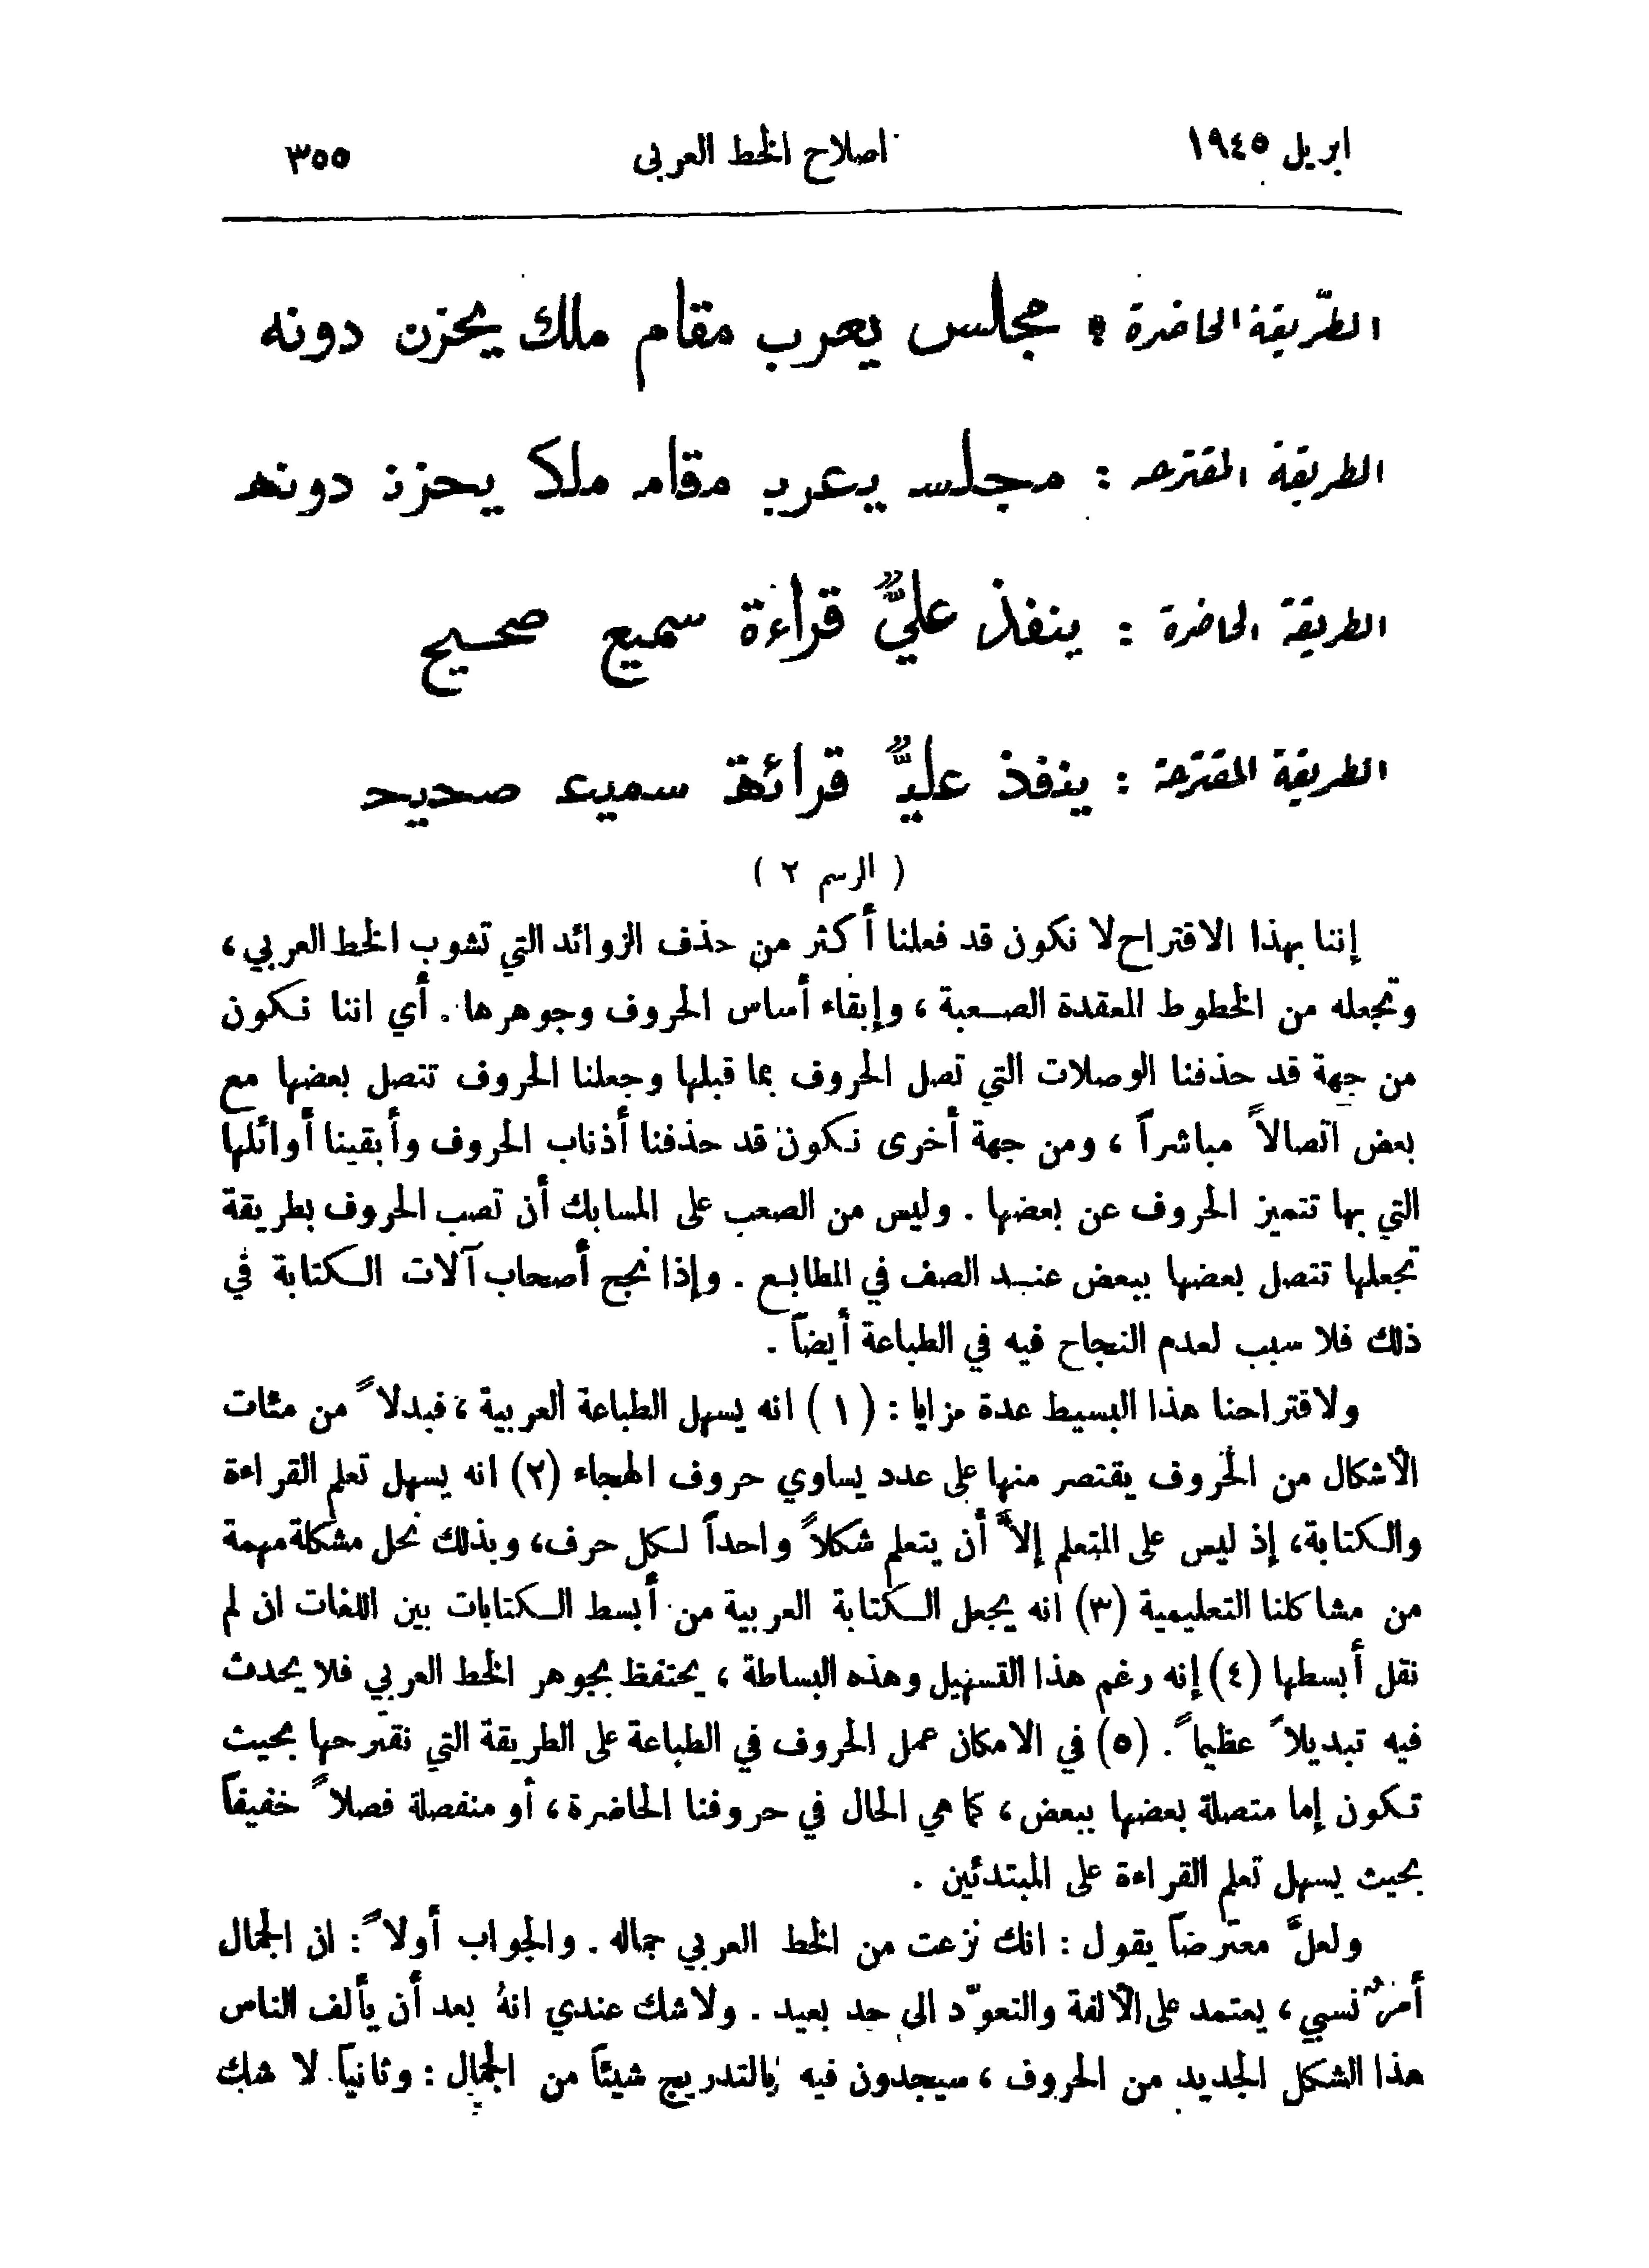 ابريل ١٩٤٥ اصلاح الخط العربى ٣٥٥
الطّريقة الحاضرة : مجلس يعرب مقام ملك يحزن دونه
الطريقة المقترحه : مجلس يعرب مقام ملك يحزن دونه
الطريقة الحاضرة : ينفذ عليٌّ قراءة سميع صحيح
الطريقة المقترحة : ينفذ عليٌّ قرائة سميع صحيح
( الرسم ٢ )
إننا بهذا الاقتراح لا نكون قد فعلنا أكثر من حذف الزوائد التي تشوب الخط العربي ،
وتجعله من الخطوط المعقدة الصعبة ، وإبقاء أساس الحروف وجوهرها . أي اننا نكون
من جهة قد حذفنا الوصلات التي تصل الحروف بما قبلها وجعلنا الحروف تتصل بعضها مع
بعض اتصالاً مباشراً ، ومن جهة أخرى نكون قد حذفنا أذناب الحروف وأبقينا أوائلها
التي بها تتميز الحروف عن بعضها . وليس من الصعب على المسابك أن تصب الحروف بطريقة
تجعلها تتصل بعضها ببعض عند الصف في المطابع . وإذا نجح أصحاب آلات الكتابة في
ذلك فلا سبب لعدم النجاح فيه في الطباعة أيضاً .
ولاقتراحنا هذا البسيط عدة مزايا : ( ١ ) انه يسهل الطباعة العربية ، فبدلاً من مئات
الأشكال من الحروف يقتصر منها على عدد يساوي حروف الهجاء (٢) انه يسهل تعلم القراءة
والكتابة، إذ ليس على المتعلم إلاَّ أن يتعلم شكلاً واحداً لكل حرف، وبذلك نحل مشكلة مهمة
من مشاكلنا التعليمية (٣) انه يجعل الكتابة العربية من أبسط الكتابات بين اللغات ان لم
نقل أبسطها (٤) إنه رغم هذا التسهيل وهذه البساطة ، يحتفظ بجوهر الخط العربي فلا يحدث
فيه تبديلاً عظيماً . (٥) في الامكان عمل الحروف في الطباعة على الطريقة التي نقترحها بحيث
تكون إما متصلة بعضها ببعض ، كما هي الحال في حروفنا الحاضرة ، أو منفصلة فصلاً خفيفاً
بحيث يسهل تعلم القراءة على المبتدئين .
ولعلَّ معترضاً يقول : انك نزعت من الخط العربي جماله . والجواب أولاً : ان الجمال
أمرٌ نسبي ، يعتمد على الألفة والتعوّد الى حد بعيد . ولاشك عندي انهُ بعد أن يألف الناس
هذا الشكل الجديد من الحروف ، سيجدون فيه بالتدريج شيئاً من الجمال : وثانياً لا شك